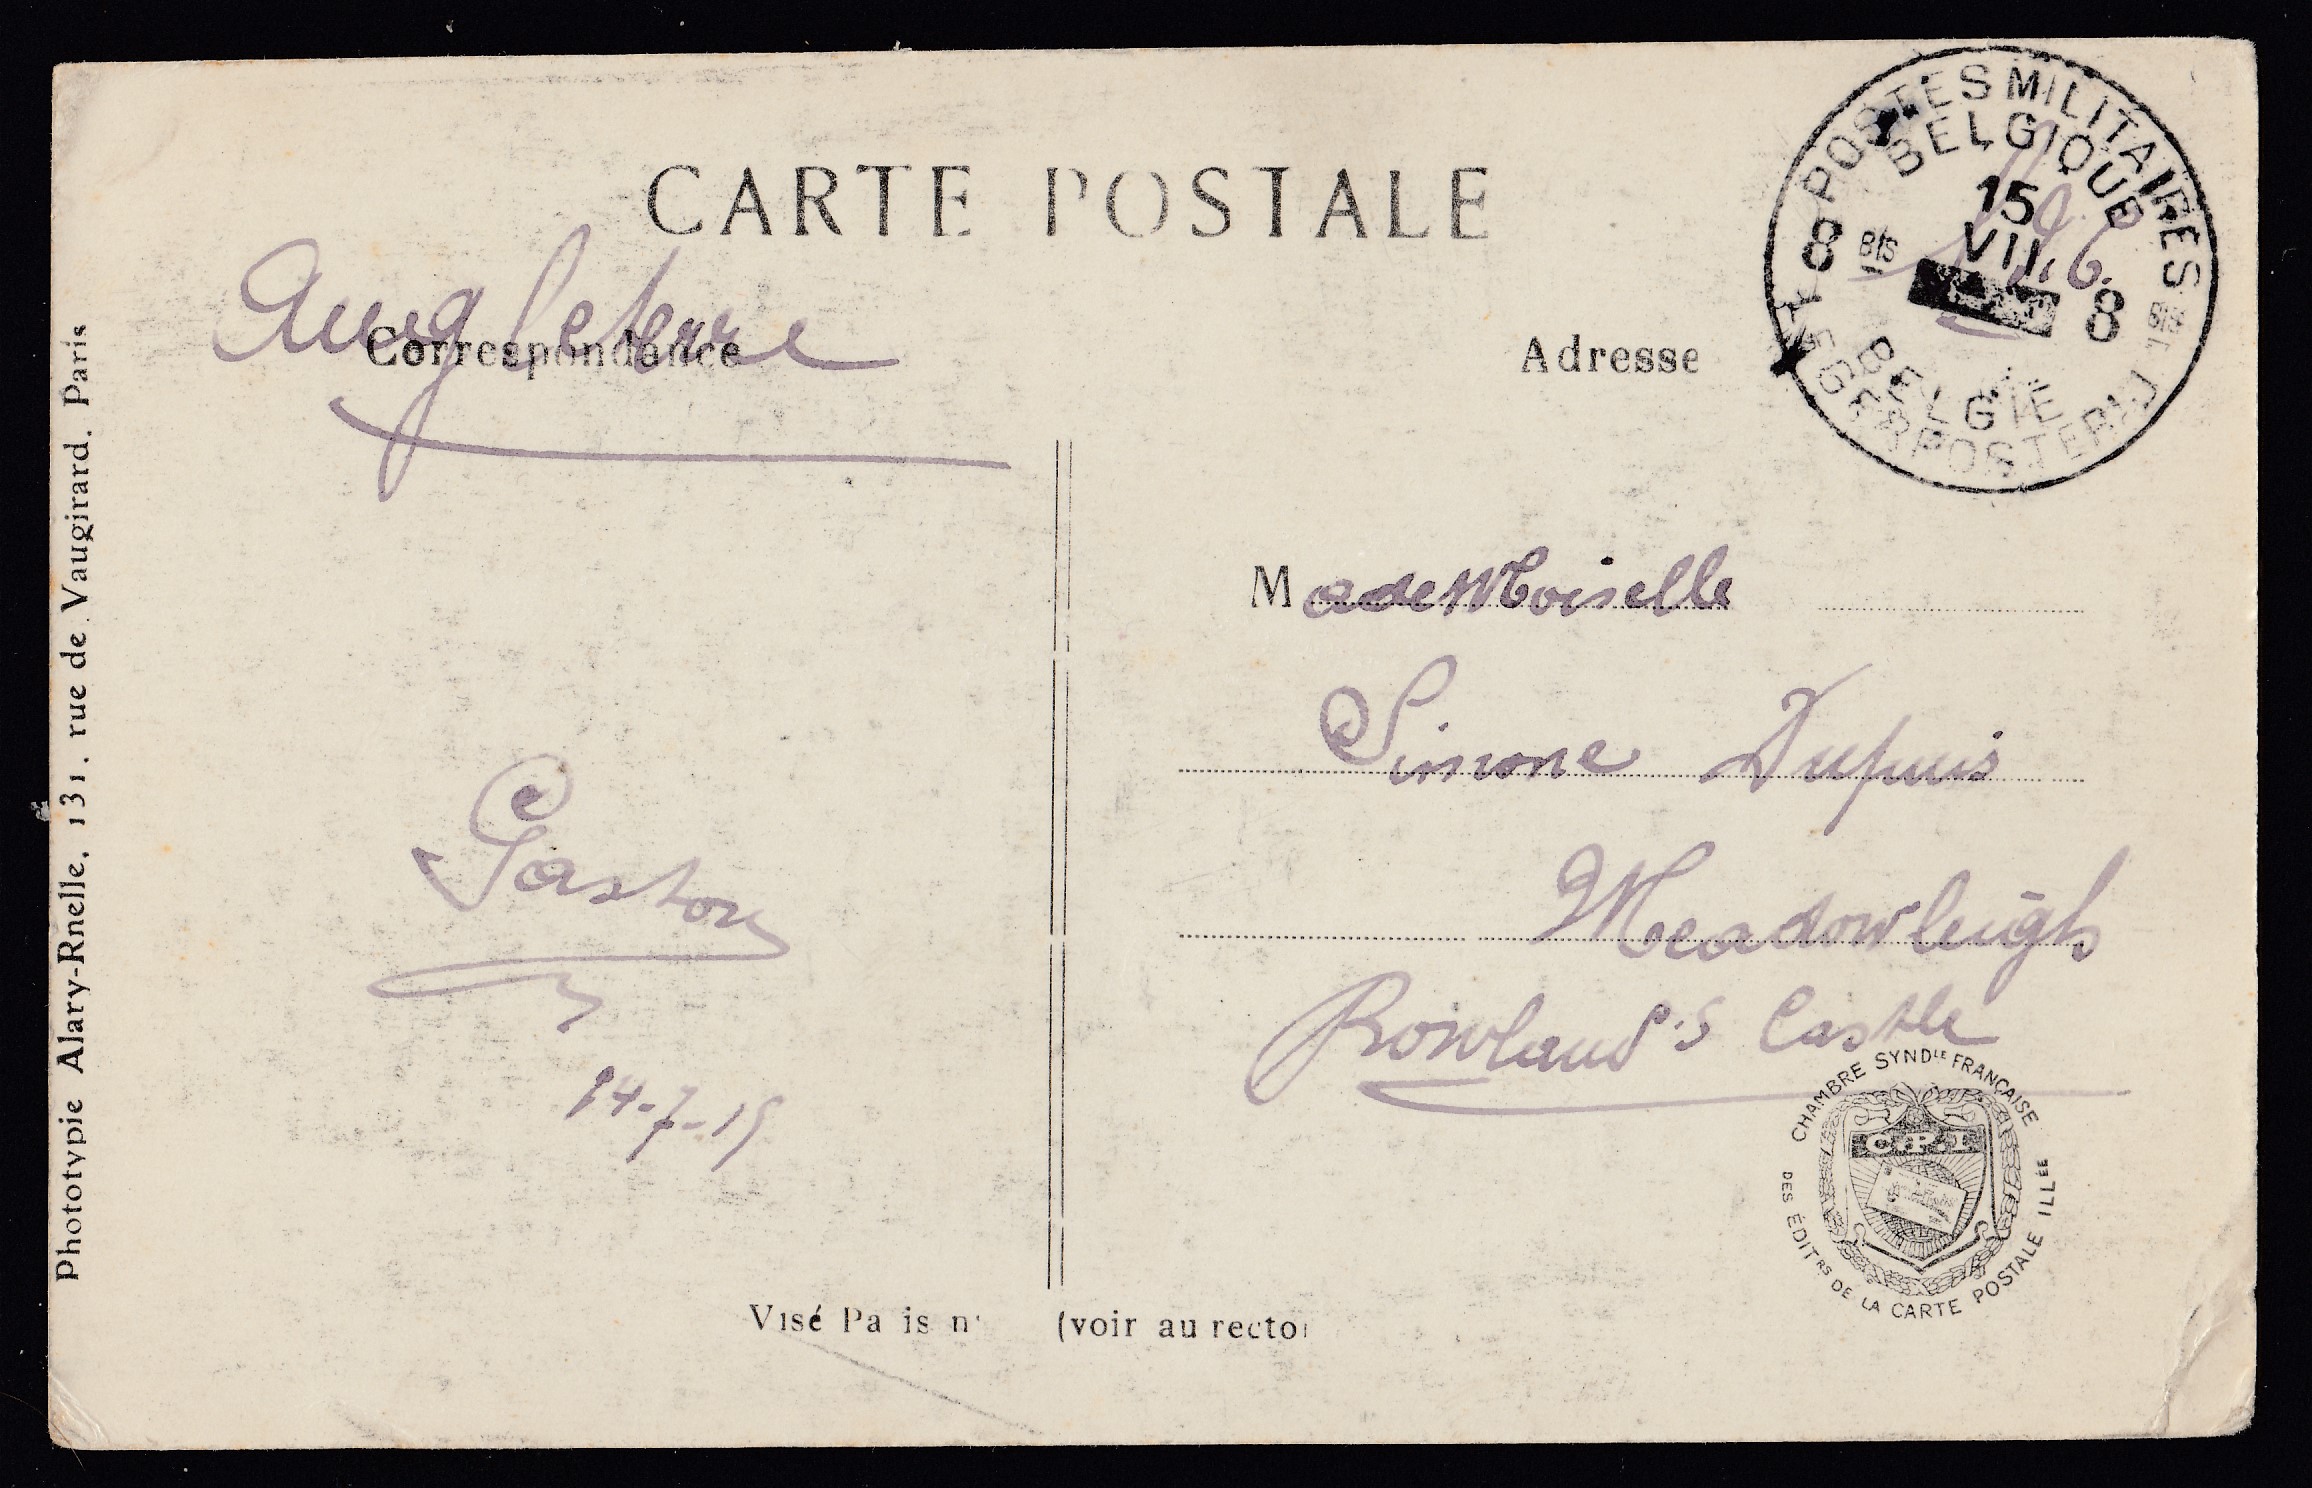 CARTE POSTALE
Angleterre
Correspondance
Adresse
POSTES MILITAIRES
BELGIQUE
15
VII
8 BIS
8 BIS
BELGIË
LEGERPOSTERIJ
Mademoiselle
Simone Dupuis
Meadowleigh
Rowland's Castle
Gaston
14-7-15
CHAMBRE SYNDLE FRANÇAISE
DES ÉDITRS DE LA CARTE POSTALE ILLÉE
C.P.I
Visé Pa is n° (voir au recto)
Phototypie Alary-Rnelle, 131, rue de Vaugirard, Paris